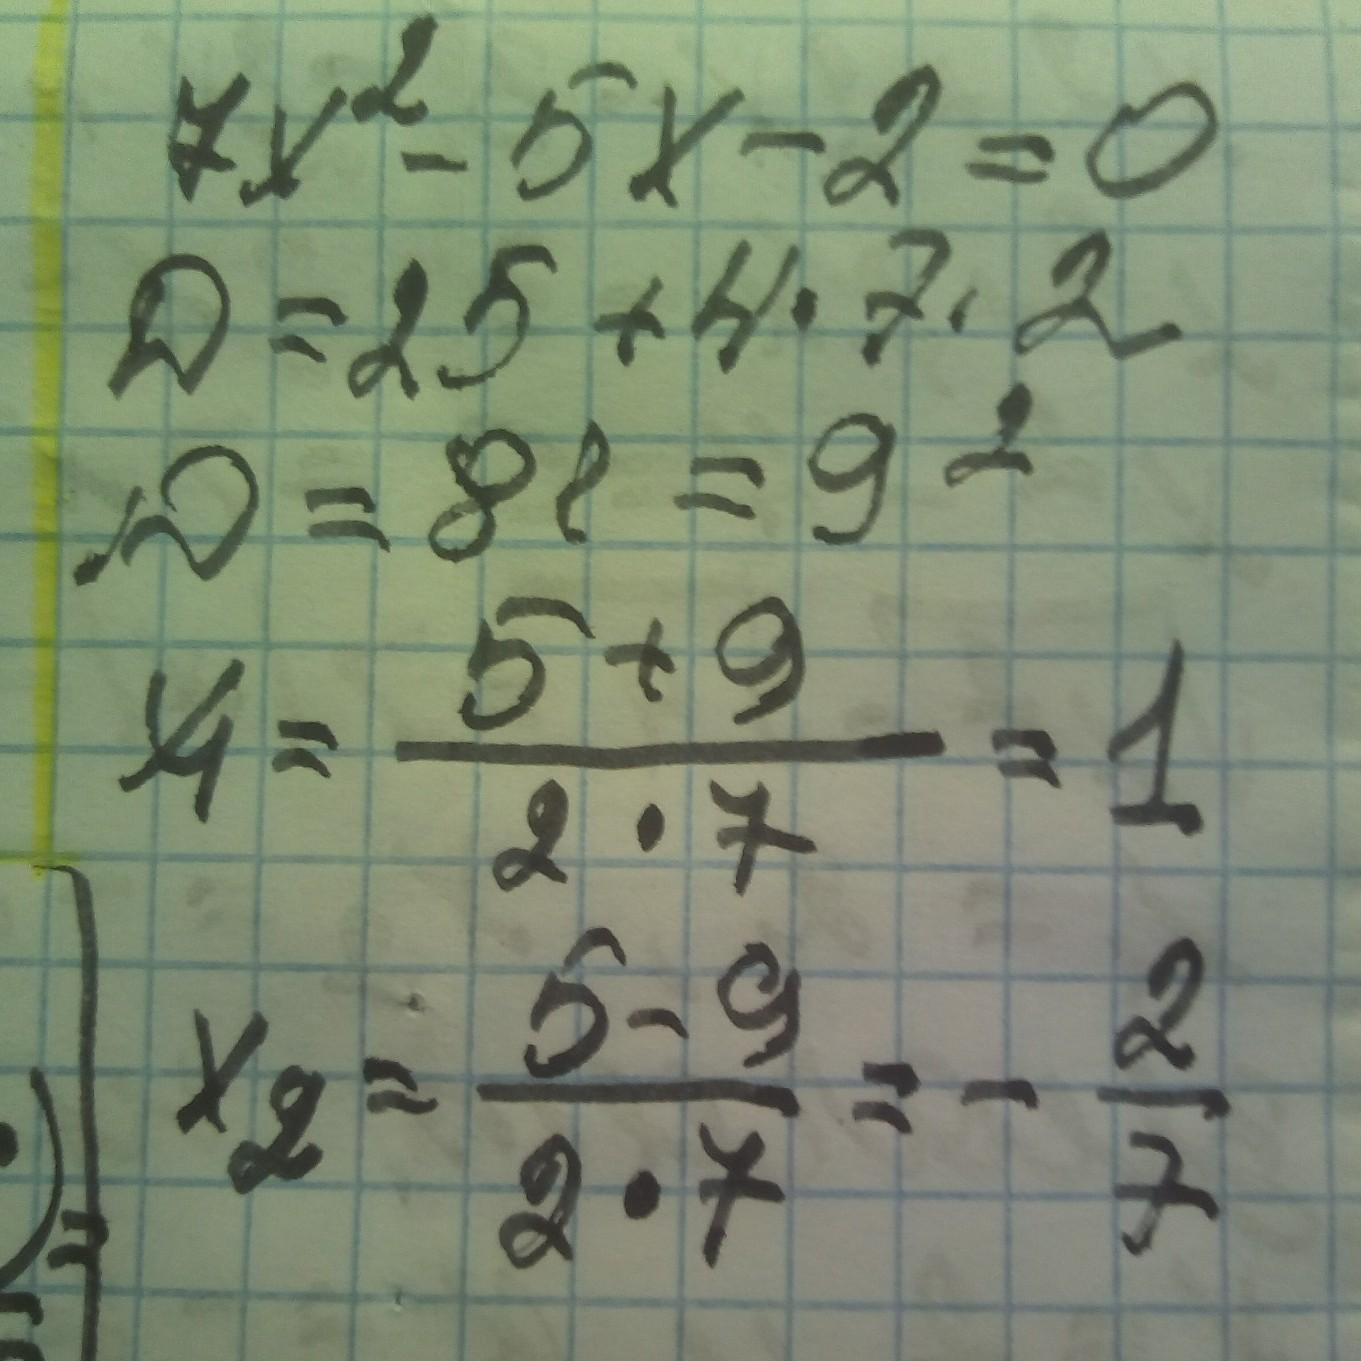 7x² - 5x - 2 = 0
D = 25 + 4 · 7 · 2
D = 81 = 9²
x₁ = (5 + 9) / (2 · 7) = 1
x₂ = (5 - 9) / (2 · 7) = - 2/7